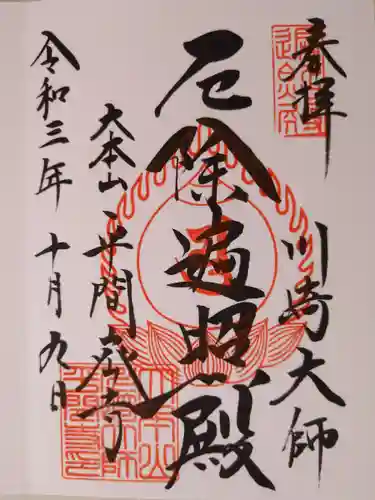 奉拝
川崎大師
厄除遍照殿
大本山平間寺
令和三年十月九日